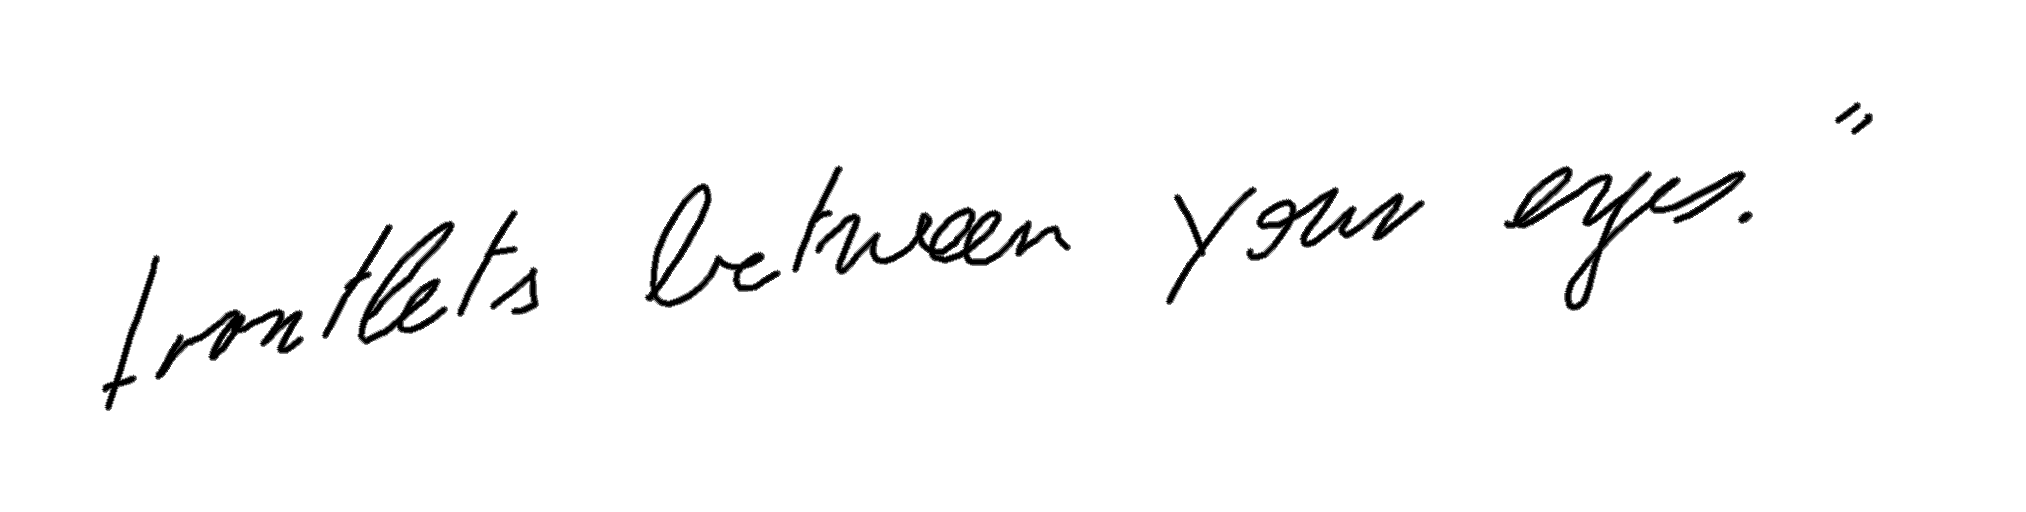 frontlets between your eyes."